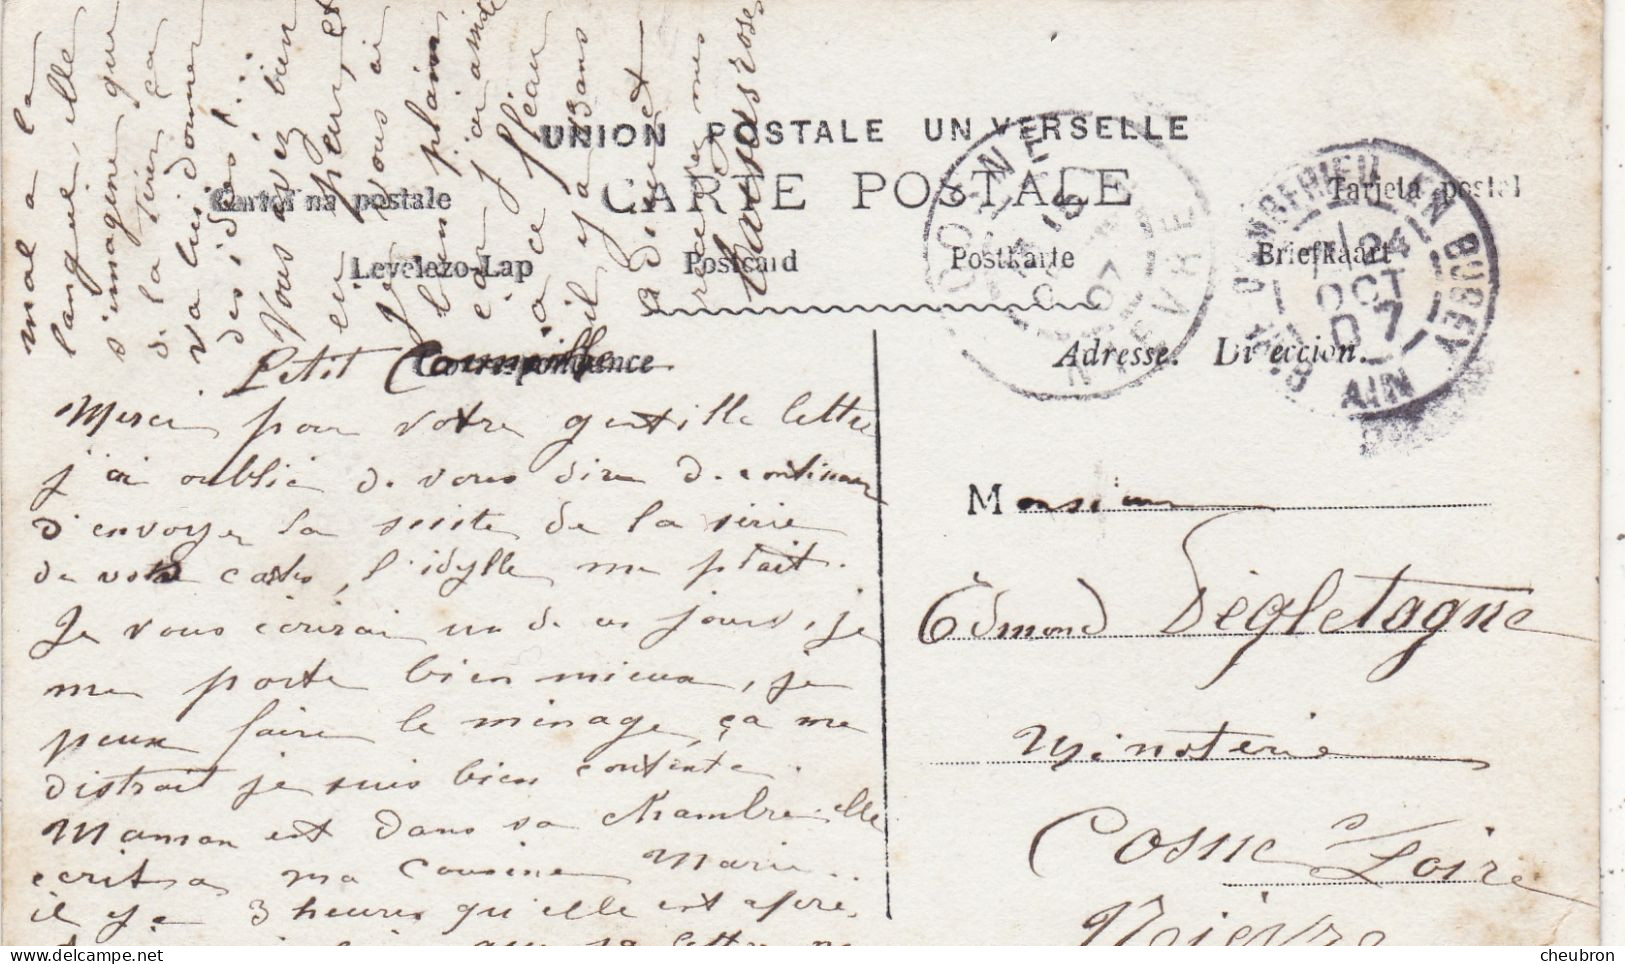 UNION POSTALE UNIVERSELLE
CARTE POSTALE
Tarjeta postal
na postale
Levelezo-Lap
Postcard
Postkarte
Briefkaart
Correspondance
Adresse. Direccion.
AMBERIEU EN BUGEY
24
OCT
07
AIN
NIEVRE
Petit
Merci pour votre gentille lettre
j'ai oublié de vous dire de continuer
d'envoyer la suite de la série
de votre cartes, l'idylle me plait.
Je vous écrirai un de ces jours, je
me porte bien mieux, je
peux faire le ménage, ça me
distrait je suis bien contente.
Maman est dans sa chambre elle
écrit à ma cousine Marie..
il y a 3 heures qu'elle est après,
sa lettre
mal a la
langue, elle
s'imagine que
de la tirer ça
va lui donner
des idées!...
Vous avez bien
peur, et
Je vous ai
bien plains
car j'ai amitié
à ce fléau
il y a ans
Monsieur
Edmond Dégletagne
Minoterie
Cosne s/ Loire
Nièvre
cheubron.com